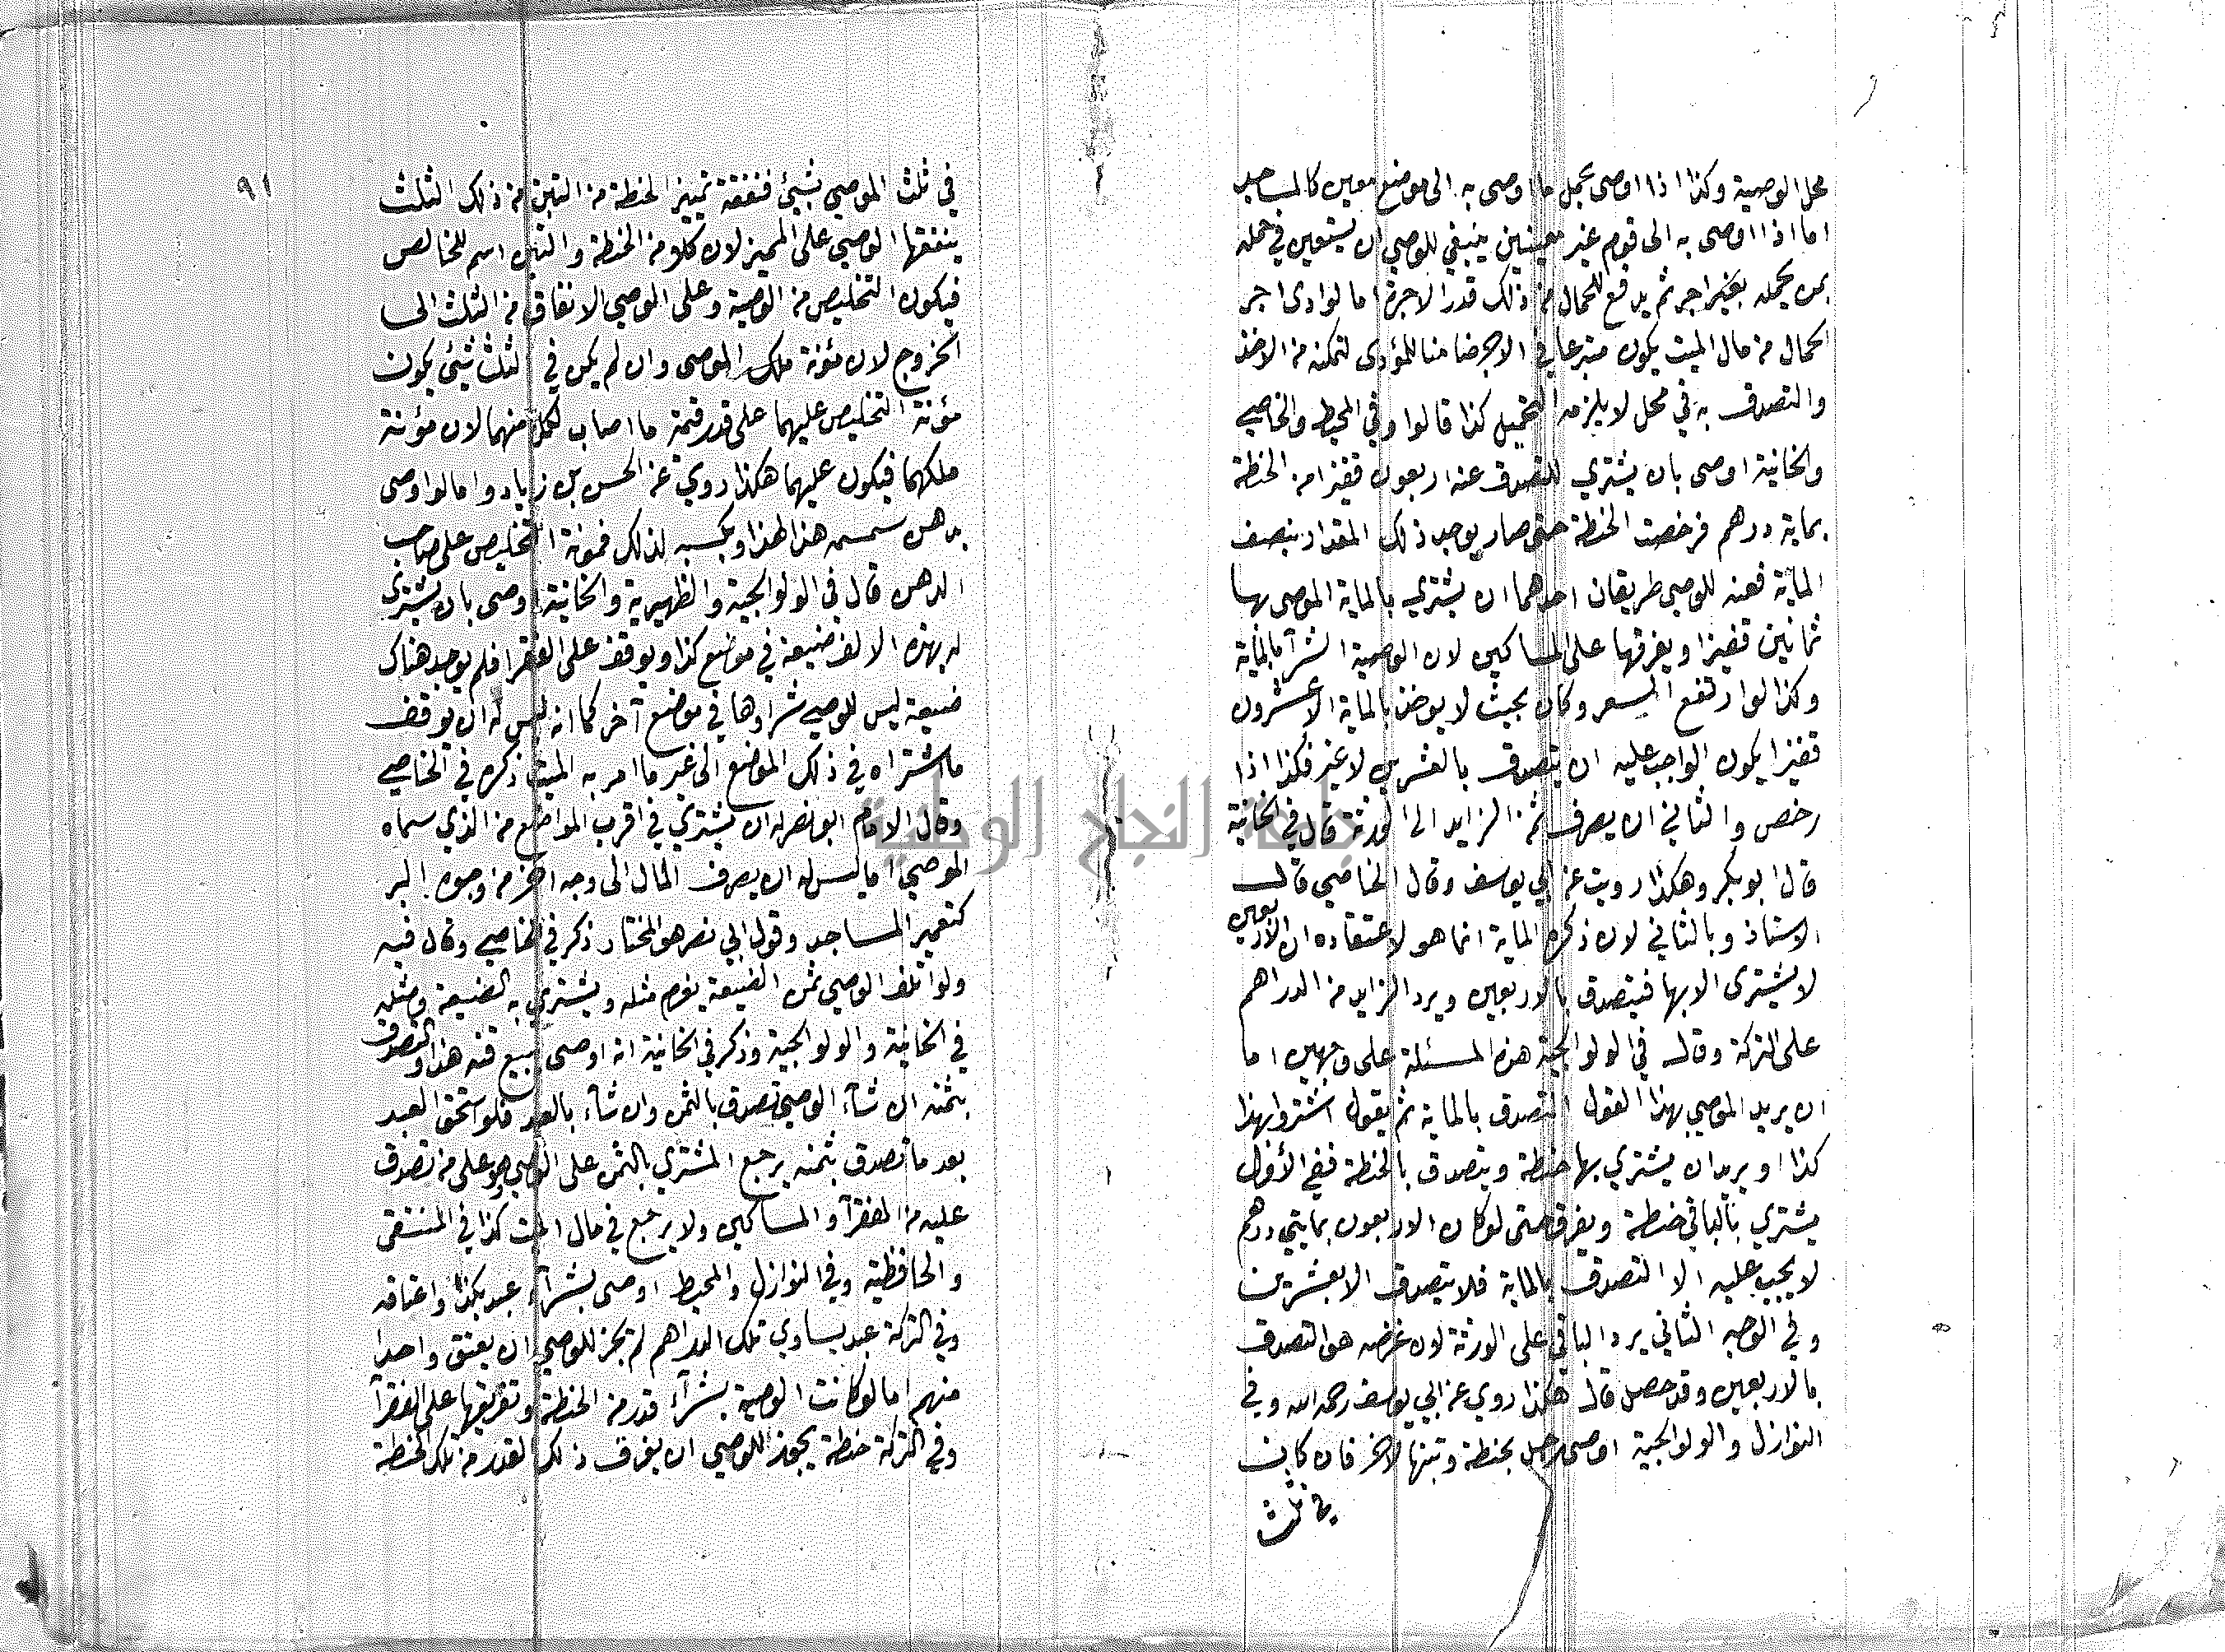 محل الوصية وكذا اذا اوصى بحمل ما اوصى به الى موضع معين كالمساجد
اما اذا اوصى به الى قوم غير معينين ينبغي للوصي ان يستعين في حمله
بمن يحمله بغير اجر ثم يدفع للحمال من ذلك قدر الاجرة اما لو ادى اجر
الحمال من مال الميت يكون متبرعا في الاجر ضامنا للمؤدى لتمكنه من الاخذ
والتصدق به في محل لا يلزمه التحميل كذا قالوا وفي المحيط والخاصي
والخانية اوصى بان يشتري للتصدق عنه اربعون قفيزا من الحنطة
بماية درهم فرخصت الحنطة حتى صار يوجد ذلك المقدار بنصف
الماية فعنه للوصي طريقان احدهما ان يشتري بالماية الموصى بها
ثمانين قفيزا ويفرقها على المساكين لان الوصية الشرآ بالماية
وكذا لو ارتفع السعر وكان بحيث لا يوخذ بالماية الا عشرون
قفيزا يكون الواجب عليه ان يتصدق بالعشرين لا غير فكذا اذا
رخص والثاني ان يصرف ثمن الزايد الى الورثة قال في الخانية
قال ابو بكر وهكذا رويت عن ابي يوسف وقال الخاصي قال
الاستاذ وبالثاني لان ذكره الماية انما هو لاعتقاده ان الاربعين
لا يشترى الا بها فيتصدق بالاربعين ويرد الزايد من الدراهم
على التركة وقال في الولوالجية هذه المسئلة على وجهين اما
ان يريد الموصي بهذا القول التصدق بالماية ثم يقول اشتروا بهذا
كذا او يريد ان يشتري بها حنطة ويتصدق بالحنطة ففي الأول
يشتري بالباقي حنطة ويفرق حتى لو كان الاربعون بمايتي درهم
لا يجب عليه الا التصدق بالماية فلا يتصدق الا بعشرين
وفي الوجه الثاني يرد الباقي على الورثة لان غرضه هو التصدق
بالاربعين وقد حصل قال هكذا روي عن ابي يوسف رحمه الله وفي
النوازل والولوالجية اوصى لرجل بحنطة وتبنها لآخر فان كان
في ثلث
٩١
في ثلث الموصي بشيئ فنفقة تمييز الحنطة من التبن من ذلك الثلث
ينفقها الوصي على المميز لان كلا من الحنطة والتبن اسم للخالص
فيكون التخليص من الوصية وعلى الوصي الانفاق من الثلث الى
الخروج لان مئونة ملك الموصى وان لم يكن في الثلث شيئ يكون
مؤنة التخليص عليهما على قدر قيمة ما اصاب لكل منهما لان مؤنة
ملكهما فيكون عليهما هكذا روي عن الحسن بن زياد واما لو اوصى
بدهن سمسم هذا لهذا وبكسبه لذلك فمونة التخليص على صاحب
الدهن قال في الولوالجية والظهيرية والخانية اوصى بان يشتري
له بهذه الالف ضيعة في موضع كذا ويوقف على الفقرا فلم يوجد هناك
ضيعة ليس للوصي شراوها في موضع آخر كما انه ليس له ان يوقف
ما اشتراه في ذلك الموضع الى غير ما امر به الميت ذكره في الخاصي
وقال الامام ابو نصر له ان يشتري في اقرب المواضع من الذي سماه
الموصي اما ليس له ان يصرف المال الى وجه اخر من وجوه البر
كتعمير المساجد وقول ابي نصر هو المختار ذكر في الخاصي وقال فيه
ولو اتلف الوصي ثمن الضيعة يغرم مثله ويشتري به الضيعة ومثله
في الخانية والولوالجية وذكر في الخانية انه اوصى ببيع قنه هذا والتصدق
بثمنه ان شآء الوصي تصدق بالثمن وان شآء بالعبد فلو استحق العبد
بعد ما تصدق بثمنه يرجع المشتري بالثمن على الوصي هو على من تصدق
عليه من الفقرآ والمساكين ولا يرجع في مال الميت كذا في المنتقى
والحافظية وفي النوازل والمحيط اوصى بشرآء عبد بكذا واعتاقه
وفي التركة عبد يساوي تلك الدراهم لم يجز للوصي ان يعتق واحدا
منهم اما لو كانت الوصية بشرآء قدر من الحنطة وتفريقها على الفقرآ
وفي التركة حنطة يجوز للوصي ان يفرق ذلك القدر من تلك الحنطة
جامعة النجاح الوطنية